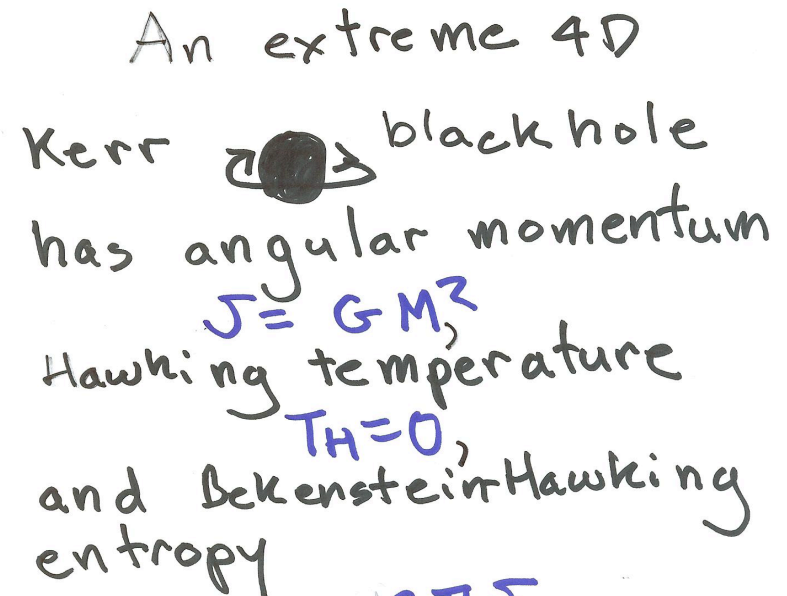 An extreme 4D
Kerr black hole
has angular momentum
J = GM²,
Hawking temperature
T_H = 0,
and Bekenstein-Hawking
entropy